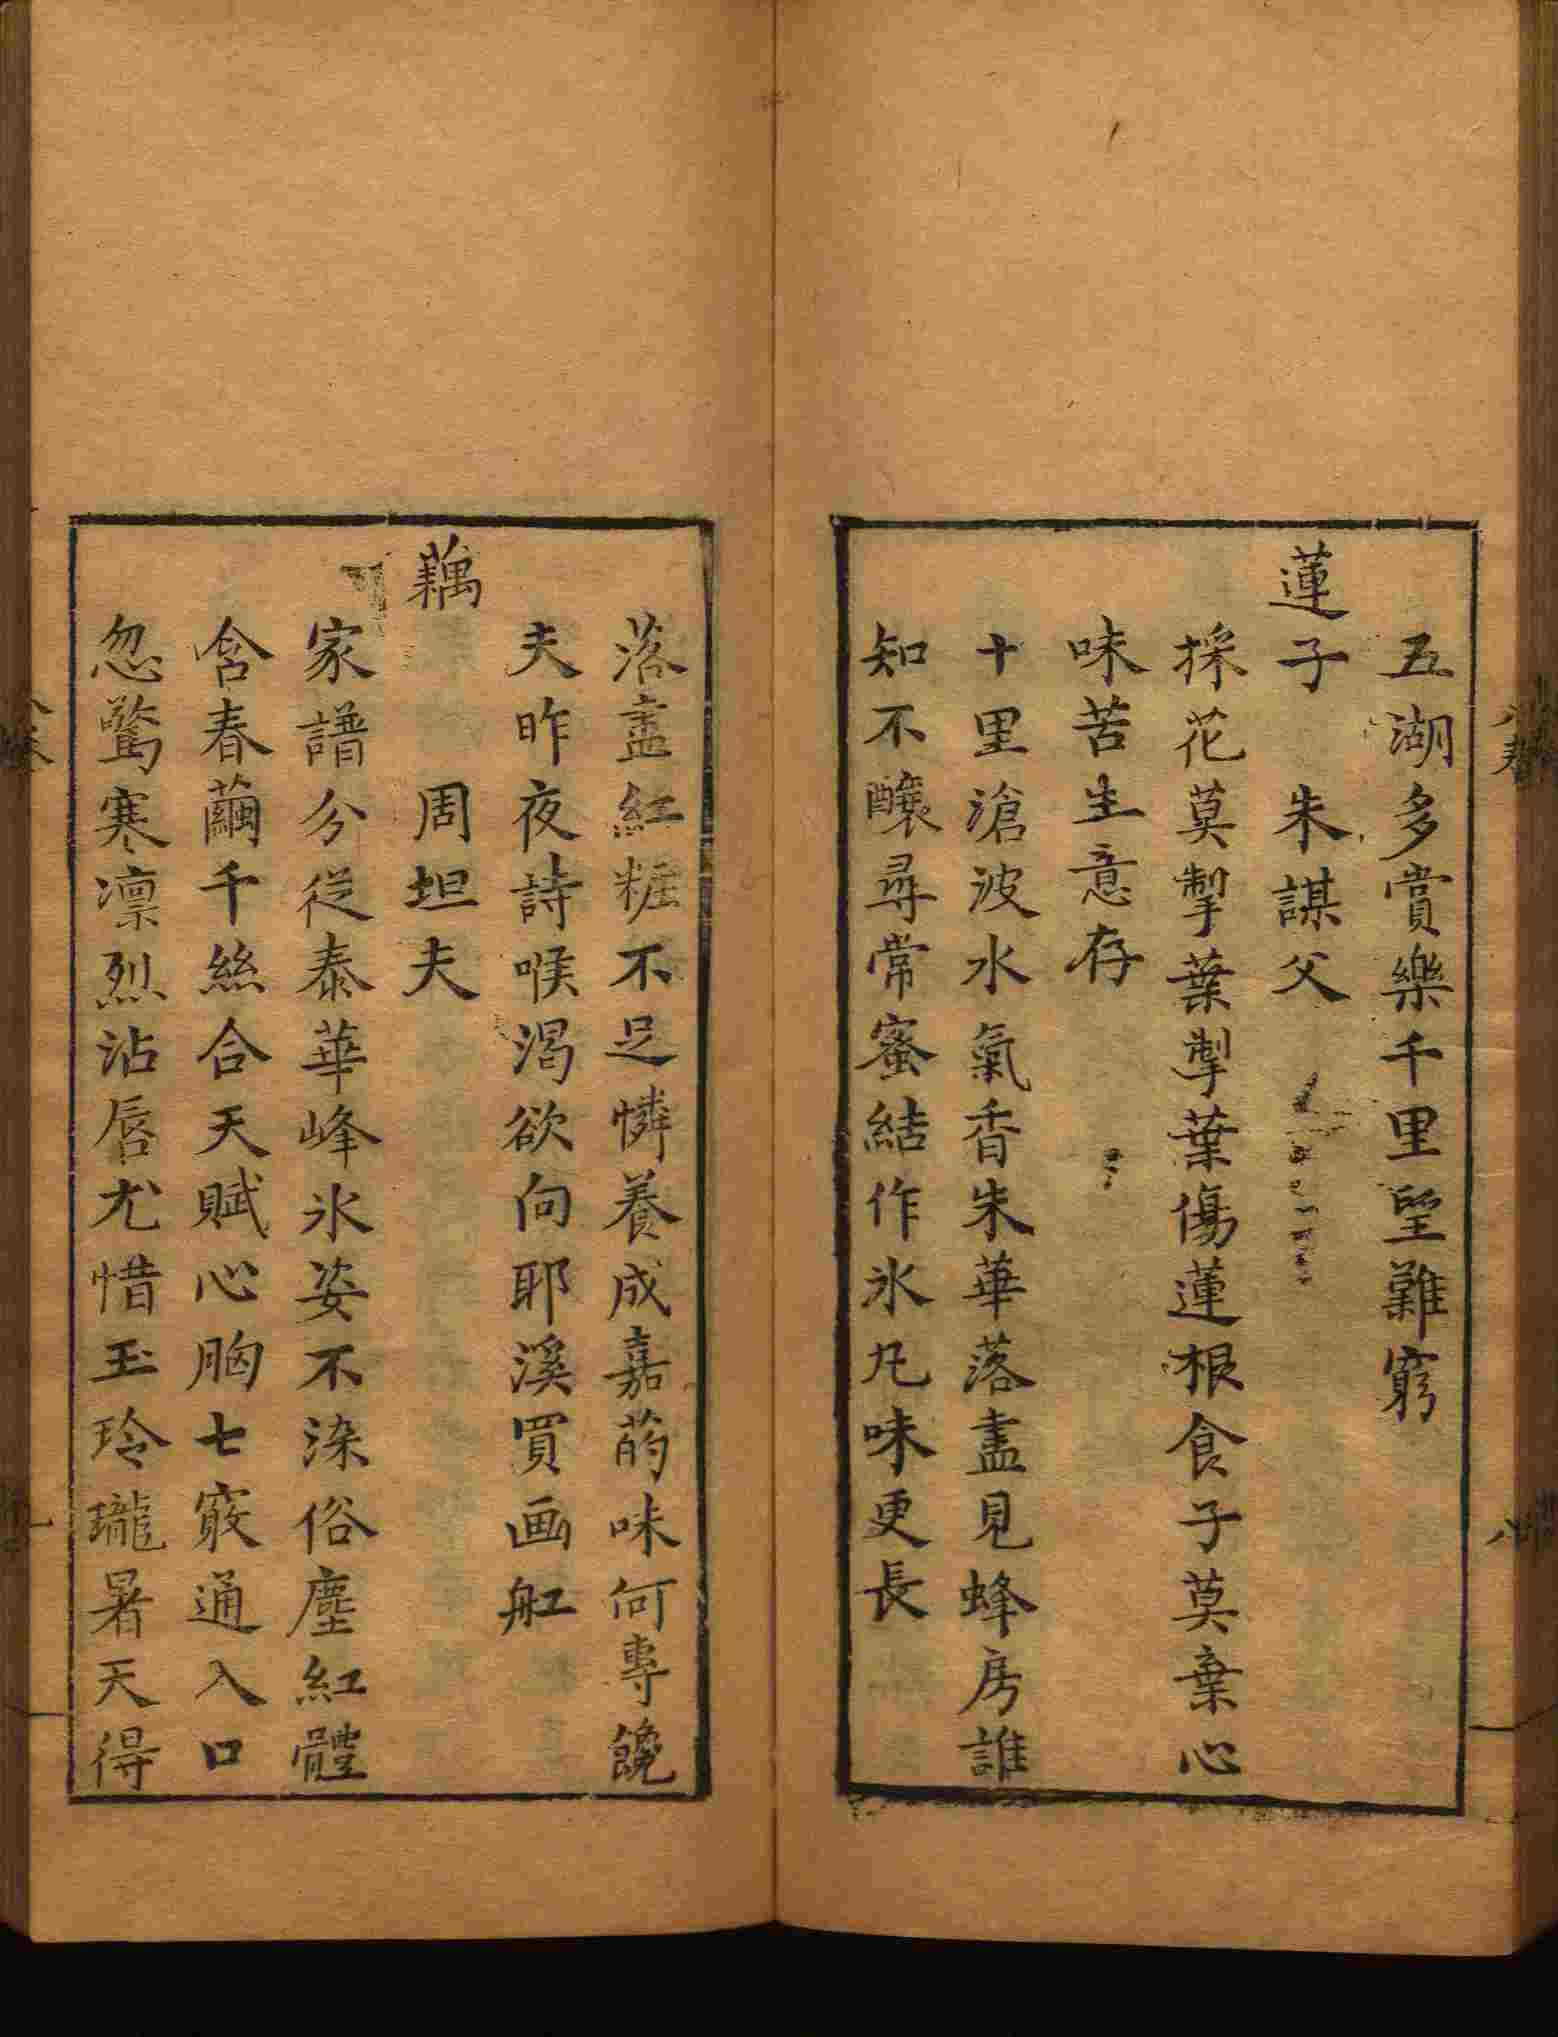 五湖多賞樂千里望難窮
蓮子　朱謀父
採花莫掣葉掣葉傷蓮根食子莫棄心
味苦生意存
十里滄波水氣香朱華落盡見蜂房誰
知不釀尋常蜜結作氷丸味更長
落盡紅粧不足憐養成嘉菂味何專饞
夫昨夜詩喉渴欲向耶溪買画舡
藕　周坦夫
家譜分從泰華峰氷姿不染俗塵紅體
含春繭千絲合天賦心胸七竅通入口
忽驚寒凛烈沾唇尤惜玉玲瓏暑天得